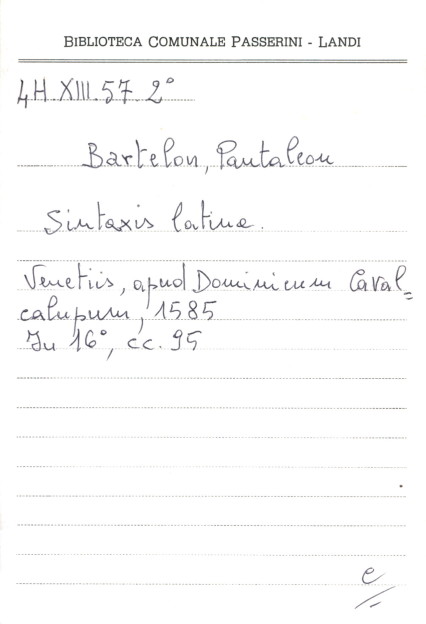 BIBLIOTECA COMUNALE PASSERINI - LANDI
4H.XIII.57.2°
Bartelon, Pantaleon
Sintaxis latina.
Venetiis, apud Dominicum Caval=
calupum, 1585
In 16°, cc. 95
e